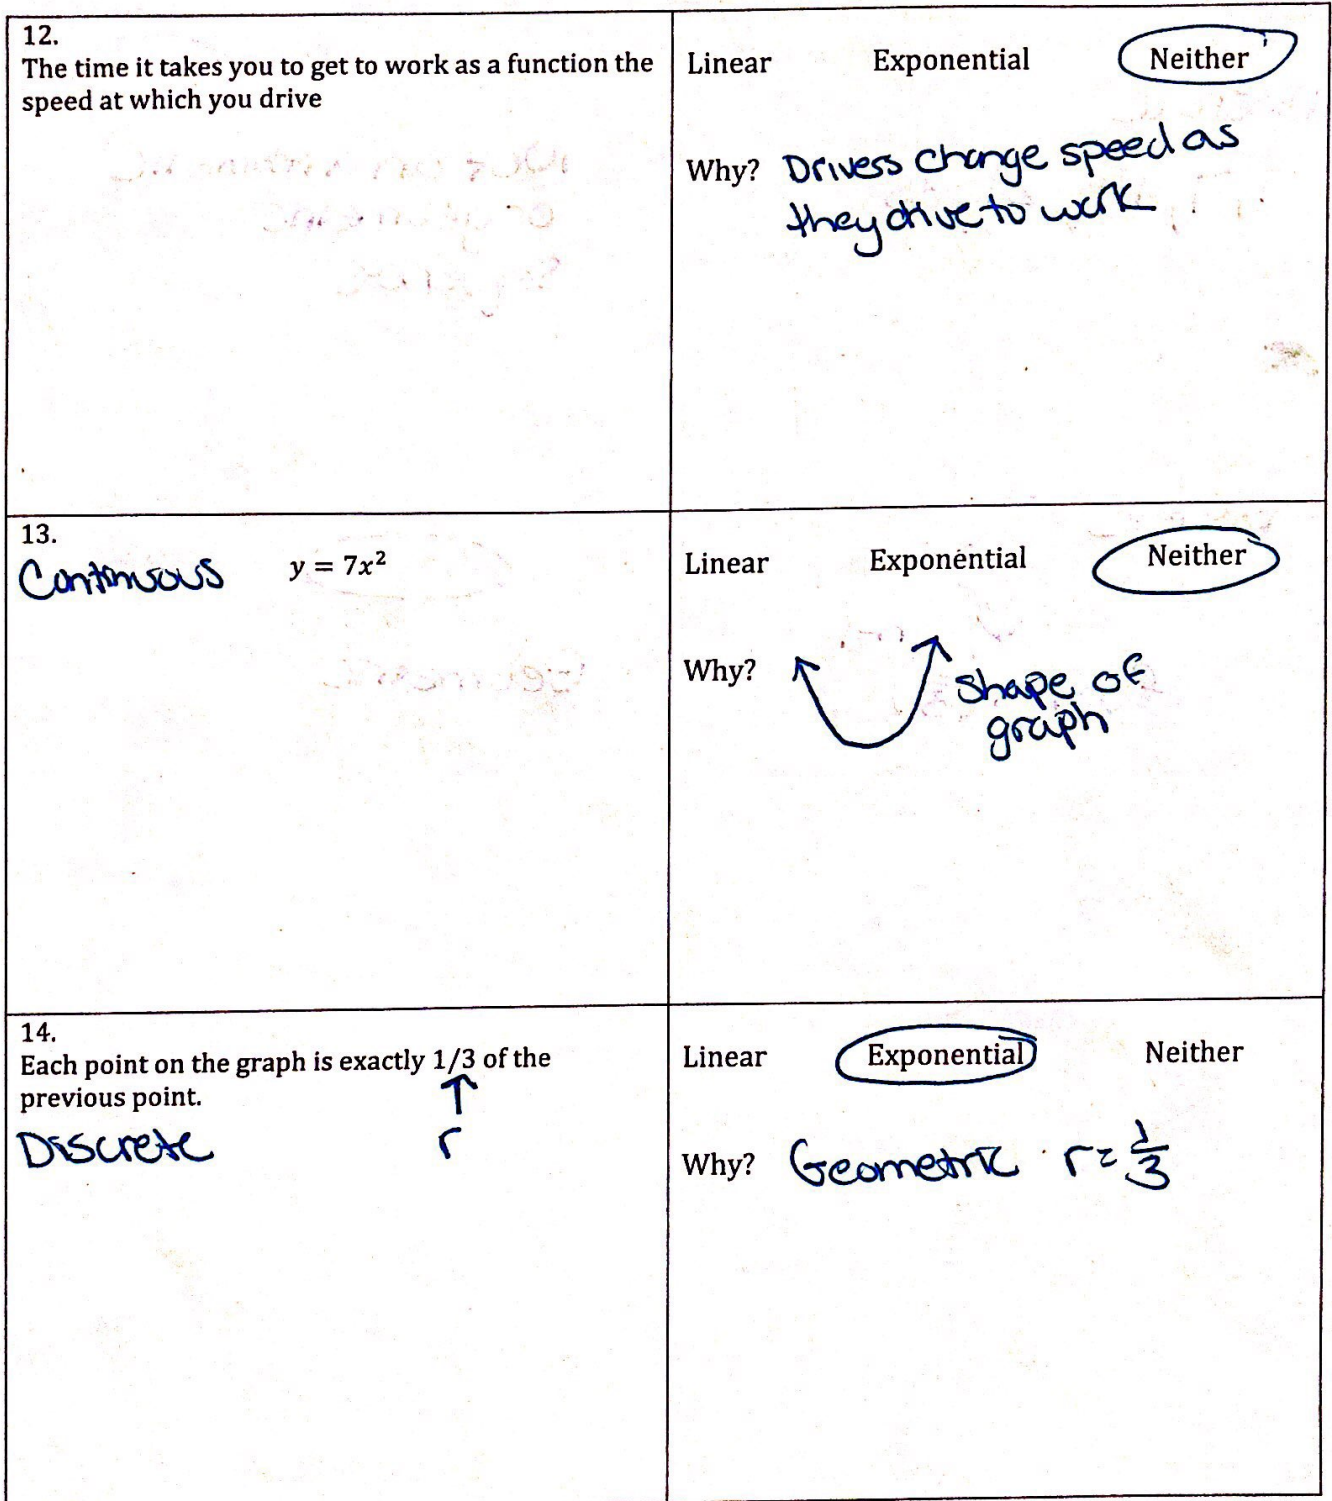 12.
The time it takes you to get to work as a function the
speed at which you drive
Linear Exponential Neither
Why? Drivess change speed as
they drive to work
13.
Continuous y = 7x²
Linear Exponential Neither
Why? shape of
graph
14.
Each point on the graph is exactly 1/3 of the
previous point.
Discrete r
Linear Exponential Neither
Why? Geometric r = 1/3